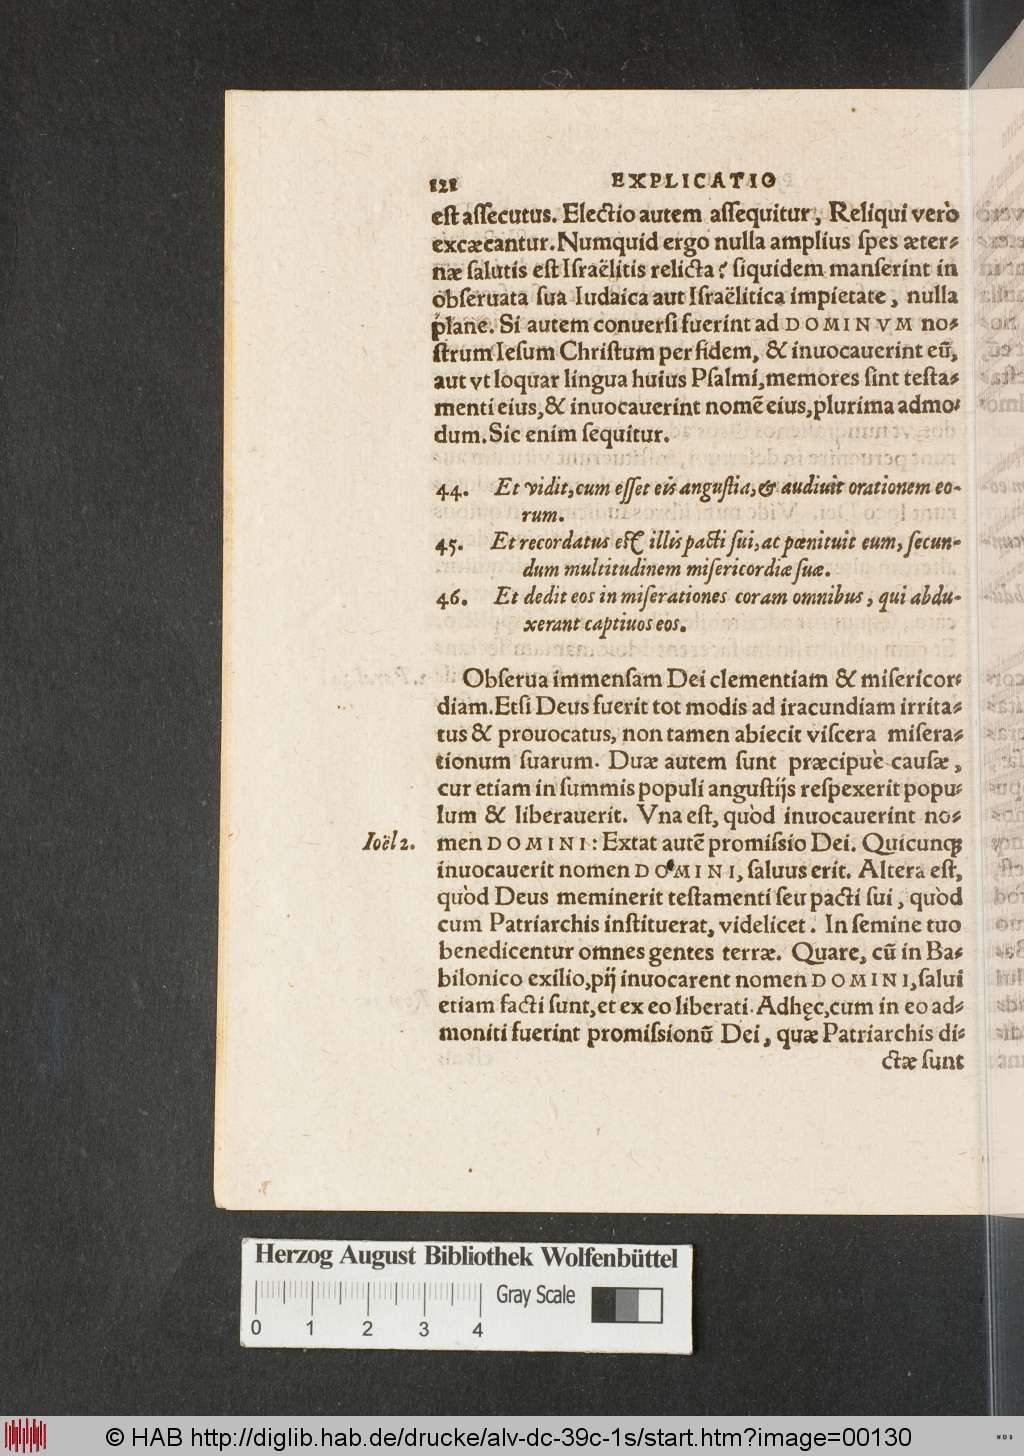 121 EXPLICATIO
est assecutus. Electio autem assequitur, Reliqui verò
excæcantur. Numquid ergo nulla amplius spes æter⸗
næ salutis est Israëlitis relicta? siquidem manserint in
obseruata sua Iudaica aut Israëlitica impietate, nulla
plane. Si autem conuersi fuerint ad DOMINVM no⸗
strum Iesum Christum per fidem, & inuocauerint eū,
aut vt loquar lingua huius Psalmi, memores sint testa⸗
menti eius, & inuocauerint nomē eius, plurima admo⸗
dum. Sic enim sequitur.
44. Et vidit, cum esset eis angustia, & audiuit orationem eo-
rum.
45. Et recordatus estꝗ illis pacti sui, ac pœnituit eum, secun-
dum multitudinem misericordiæ suæ.
46. Et dedit eos in miserationes coram omnibus, qui abdu-
xerant captiuos eos.
Obserua immensam Dei clementiam & misericor⸗
diam. Etsi Deus fuerit tot modis ad iracundiam irrita⸗
tus & prouocatus, non tamen abiecit viscera misera⸗
tionum suarum. Duæ autem sunt præcipuè causæ,
cur etiam in summis populi angustijs respexerit popu⸗
lum & liberauerit. Vna est, quòd inuocauerint no⸗
Ioël 2. men DOMINI: Extat autē promissio Dei. Quicunqꝫ
inuocauerit nomen DOMINI, saluus erit. Altera est,
quòd Deus meminerit testamenti seu pacti sui, quòd
cum Patriarchis instituerat, videlicet. In semine tuo
benedicentur omnes gentes terræ. Quare, cū in Ba⸗
bilonico exilio, pij inuocarent nomen DOMINI, salui
etiam facti sunt, et ex eo liberati. Adhęc, cum in eo ad⸗
moniti fuerint promissionū Dei, quæ Patriarchis di⸗
ctæ sunt
Herzog August Bibliothek Wolfenbüttel
Gray Scale
0 1 2 3 4
© HAB http://diglib.hab.de/drucke/alv-dc-39c-1s/start.htm?image=00130